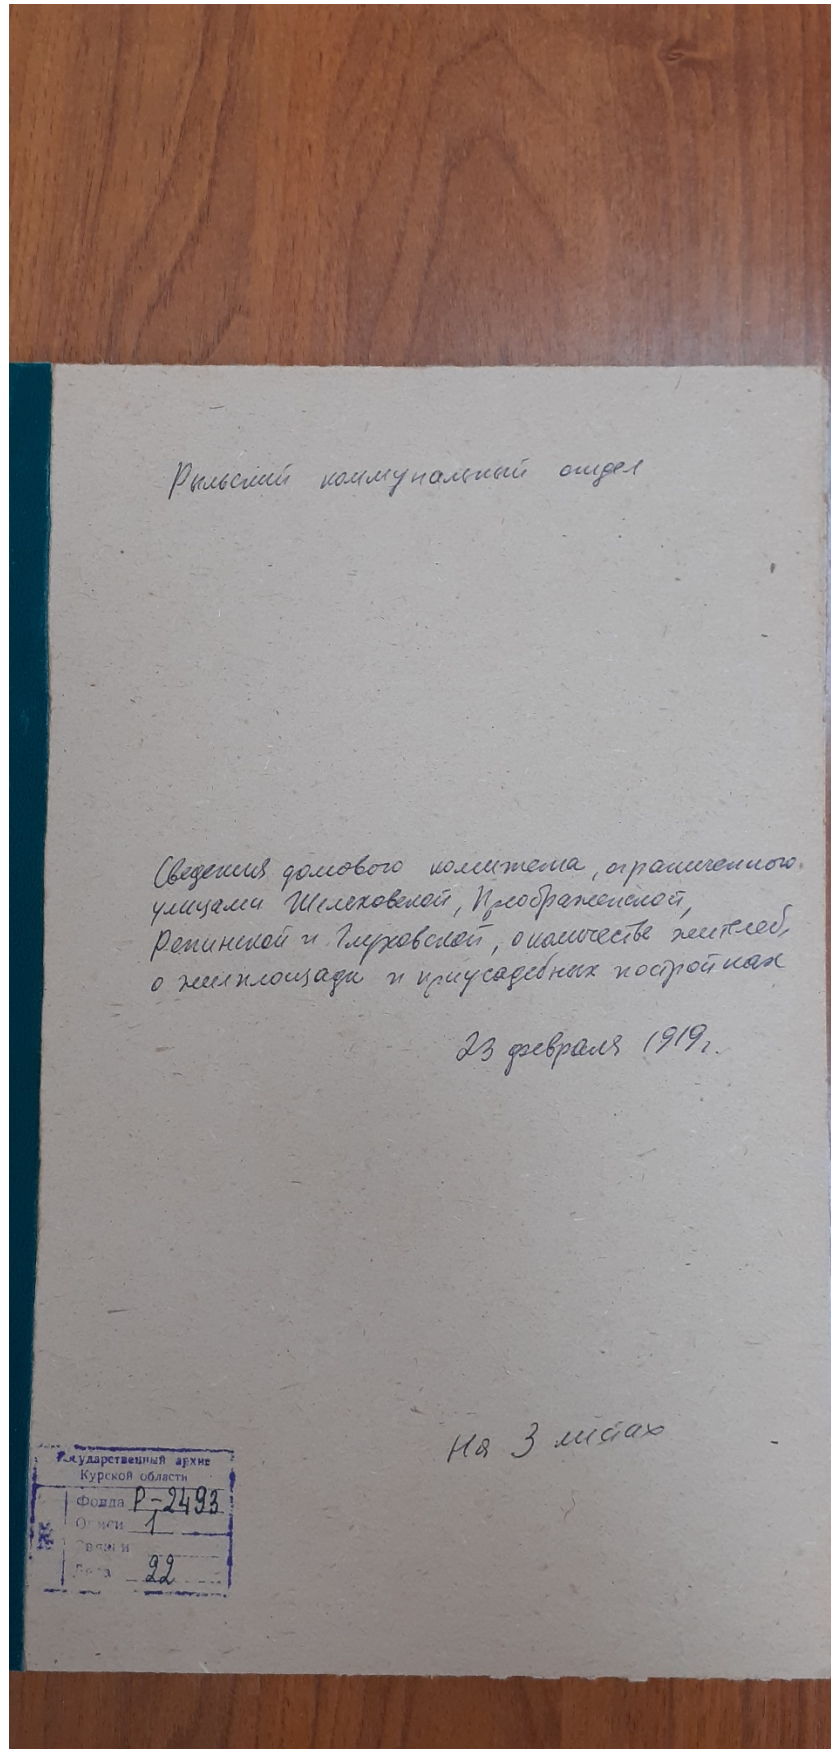 Рыльский коммунальный отдел
Сведения домового комитета, ограниченного
улицами Шелеховской, Преображенской,
Репинской и Глуховской, о количестве жителей,
о жилплощади и приусадебных постройках
23 февраля 1919 г.
На 3 листах
Государственный архив
Курской области
№
Фонда Р-2493
Описи 1
Связки
Дела 22